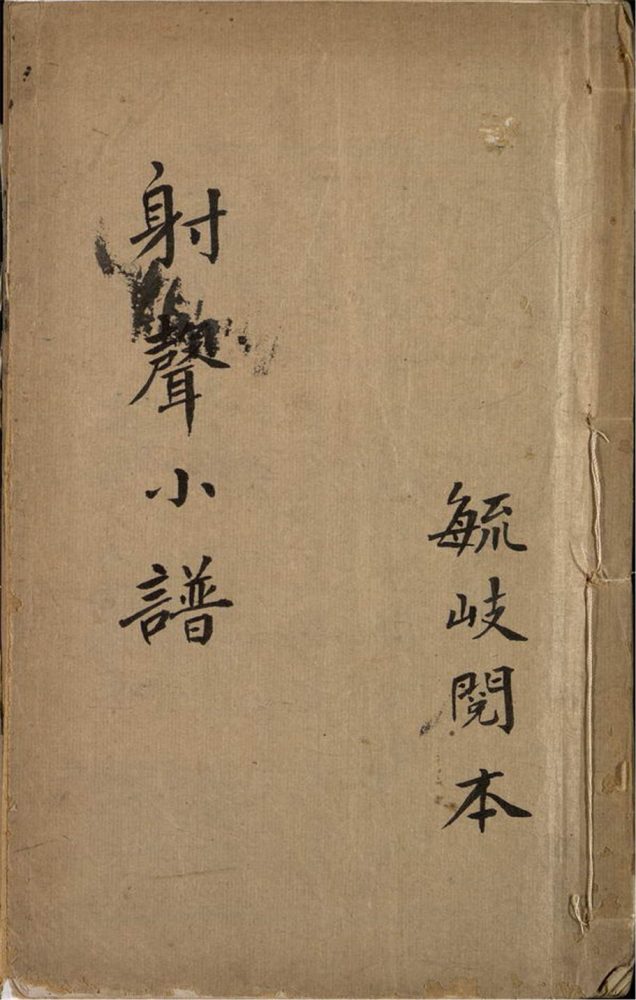 毓岐閱本
射聲小譜